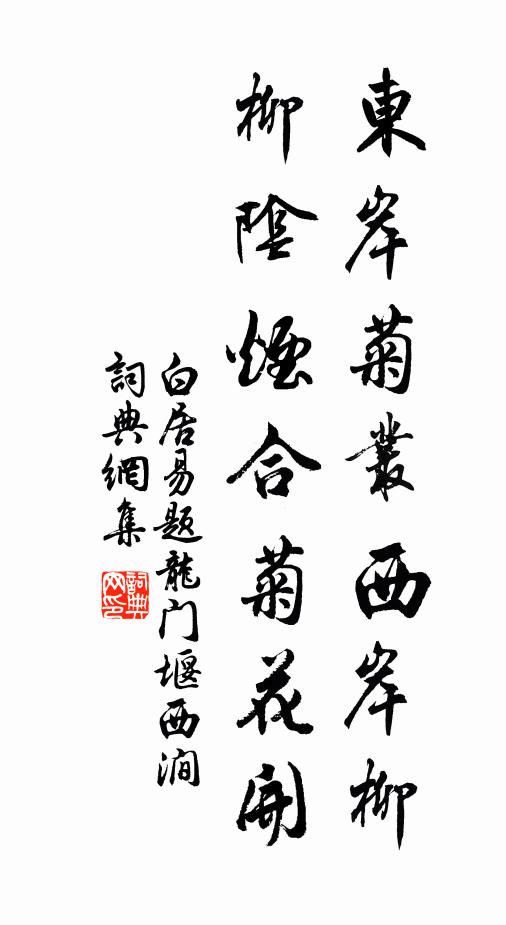 東岸菊叢西岸柳
柳陰煙合菊花開
白居易题龍门堰西澗
詞典網集
詞典网印